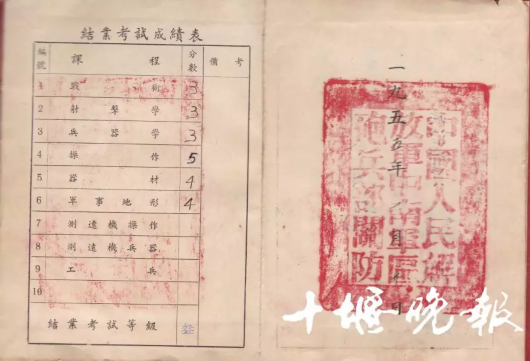 結業考試成績表
編號 課程 分數 備考
1 戰術 3
2 射擊學 3
3 兵器學 3
4 操作 5
5 器材 4
6 軍事地形 4
7 測遠機操作
8 測遠機兵器
9 工兵
10
結業考試等級
一九五五年 月 日
中國人民解
放軍中南軍區
兵 關防
十堰晚報